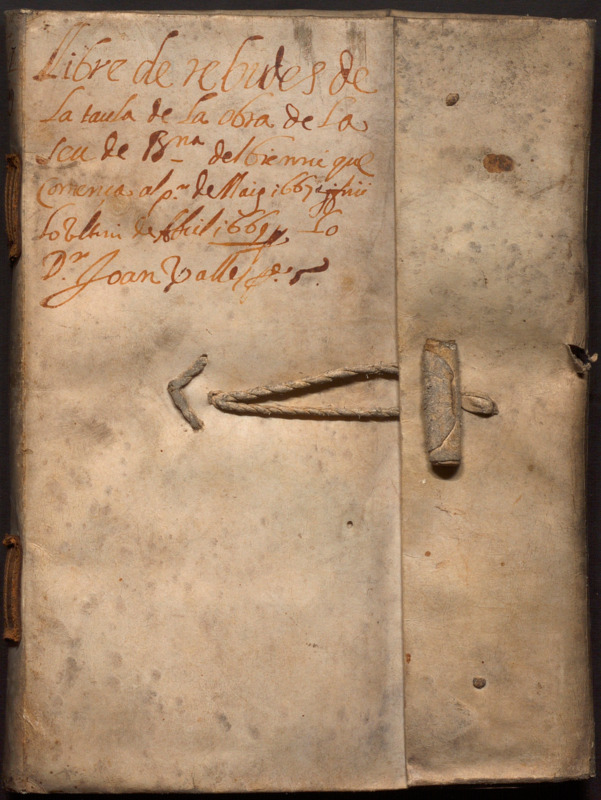 Llibre de rebudes de
La taula de La obra de La
seu de Bna del bienni que
comença al pr de Maig 1667 y finí
lo ultim de Abril 1669 Jo
Dr Joan Valles